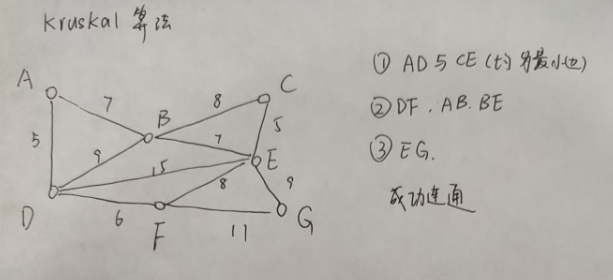 Kruskal 算法
A
7
B
8
C
5
9
7
5
15
E
8
9
D
6
F
11
G
① AD与CE(均为最小边)
② DF. AB. BE
③ EG.
成功连通